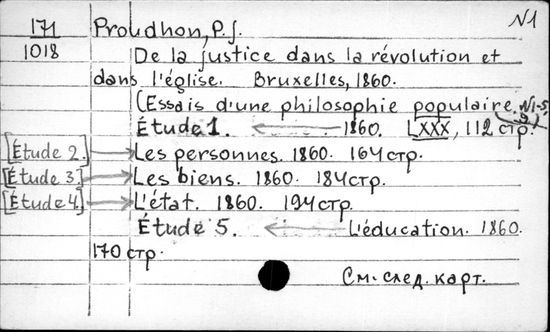 171
1018
N1
Proudhon, P. J.
De la justice dans la révolution et
dans l'église. Bruxelles, 1860.
(Essais d'une philosophie populaire, N1-5
Étude 1. 1860. LXXX, 112 стр.
[Étude 2.] Les personnes. 1860. 164 стр.
[Étude 3.] Les biens. 1860. 184 стр.
[Étude 4] L'état. 1860. 194 стр.
Étude 5. L'éducation. 1860.
170 стр.
См. след. карт.